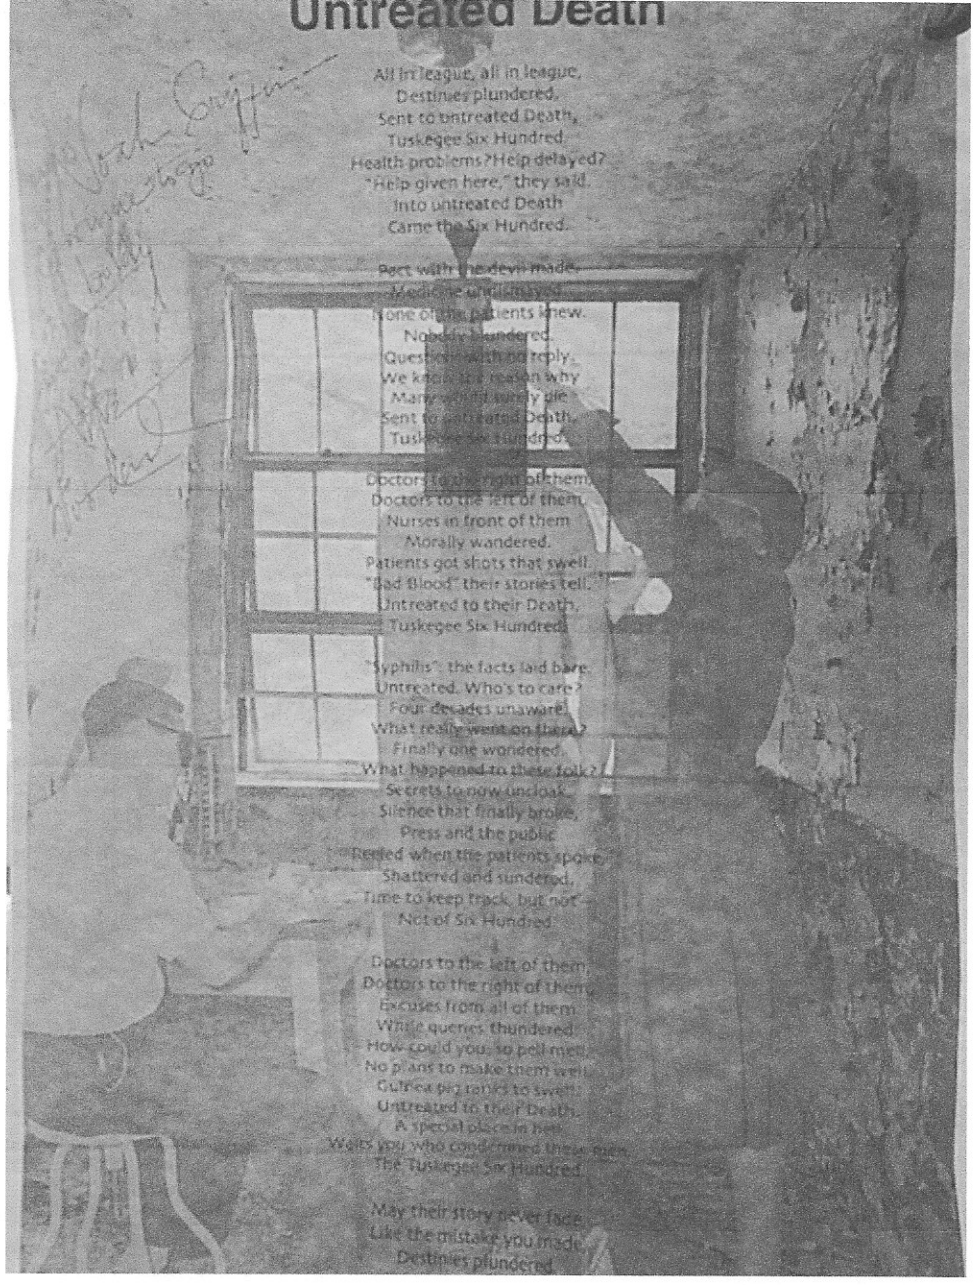 Untreated Death
All in league, all in league,
Destinies plundered,
Sent to untreated Death,
Tuskegee Six Hundred.
Health problems?Help delayed?
"Help given here," they said.
Into untreated Death
Came the Six Hundred.
Pact with the devil made,
Medicine undismayed
None of the patients knew.
Nobody blundered.
Questions with no reply.
We know the reason why
Many would surely die
Sent to untreated Death,
Tuskegee Six Hundred.
Doctors to the right of them,
Doctors to the left of them,
Nurses in front of them
Morally wandered.
Patients got shots that swell.
"Bad Blood" their stories tell.
Untreated to their Death,
Tuskegee Six Hundred.
"Syphilis": the facts laid bare.
Untreated. Who's to care?
Four decades unaware,
What really went on there?
Finally one wondered.
What happened to these folk?
Secrets to now uncloak.
Silence that finally broke,
Press and the public
Reeled when the patients spoke,
Shattered and sundered.
Time to keep track, but not –
Not of Six Hundred.
Doctors to the left of them,
Doctors to the right of them,
Excuses from all of them
While queries thundered
How could you, so pell mell,
No plans to make them well,
Guinea pig ranks to swell.
Untreated to their Death.
A special place in hell
Waits you who condemned these men,
The Tuskegee Six Hundred.
May their story never fade
Like the mistake you made,
Destinies plundered